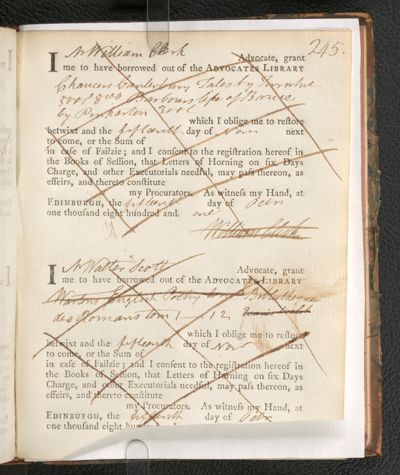 245.
I Mr William Clerk Advocate, grant
me to have borrowed out of the ADVOCATES LIBRARY
Chaucers Canterbury Tales by
8vo Barbours life of Bruce
by Pinkerton 3 vol
which I oblige me to restore
betwixt and the fifteenth day of Novr next
to come, or the Sum of
in case of Failzie; and I consent to the registration hereof in
the Books of Session, that Letters of Horning on six Days
Charge, and other Executorials needful, may pass thereon, as
effeirs, and thereto constitute
my Procurators. As witness my Hand, at
EDINBURGH, the fifteenth day of
one thousand eight hundred and one
William Clerk
I Mr Walter Scott Advocate, grant
me to have borrowed out of the ADVOCATES LIBRARY
Wartons English Poetry Bibliotheque
des Romans tom 1 - 12
which I oblige me to restore
betwixt and the fifteenth day of Novr next
to come, or the Sum of
in case of Failzie; and I consent to the registration hereof in
the Books of Session, that Letters of Horning on six Days
Charge, and other Executorials needful, may pass thereon, as
effeirs, and thereto constitute
my Procurators. As witness my Hand, at
EDINBURGH, the fifteenth day of
one thousand eight hundred